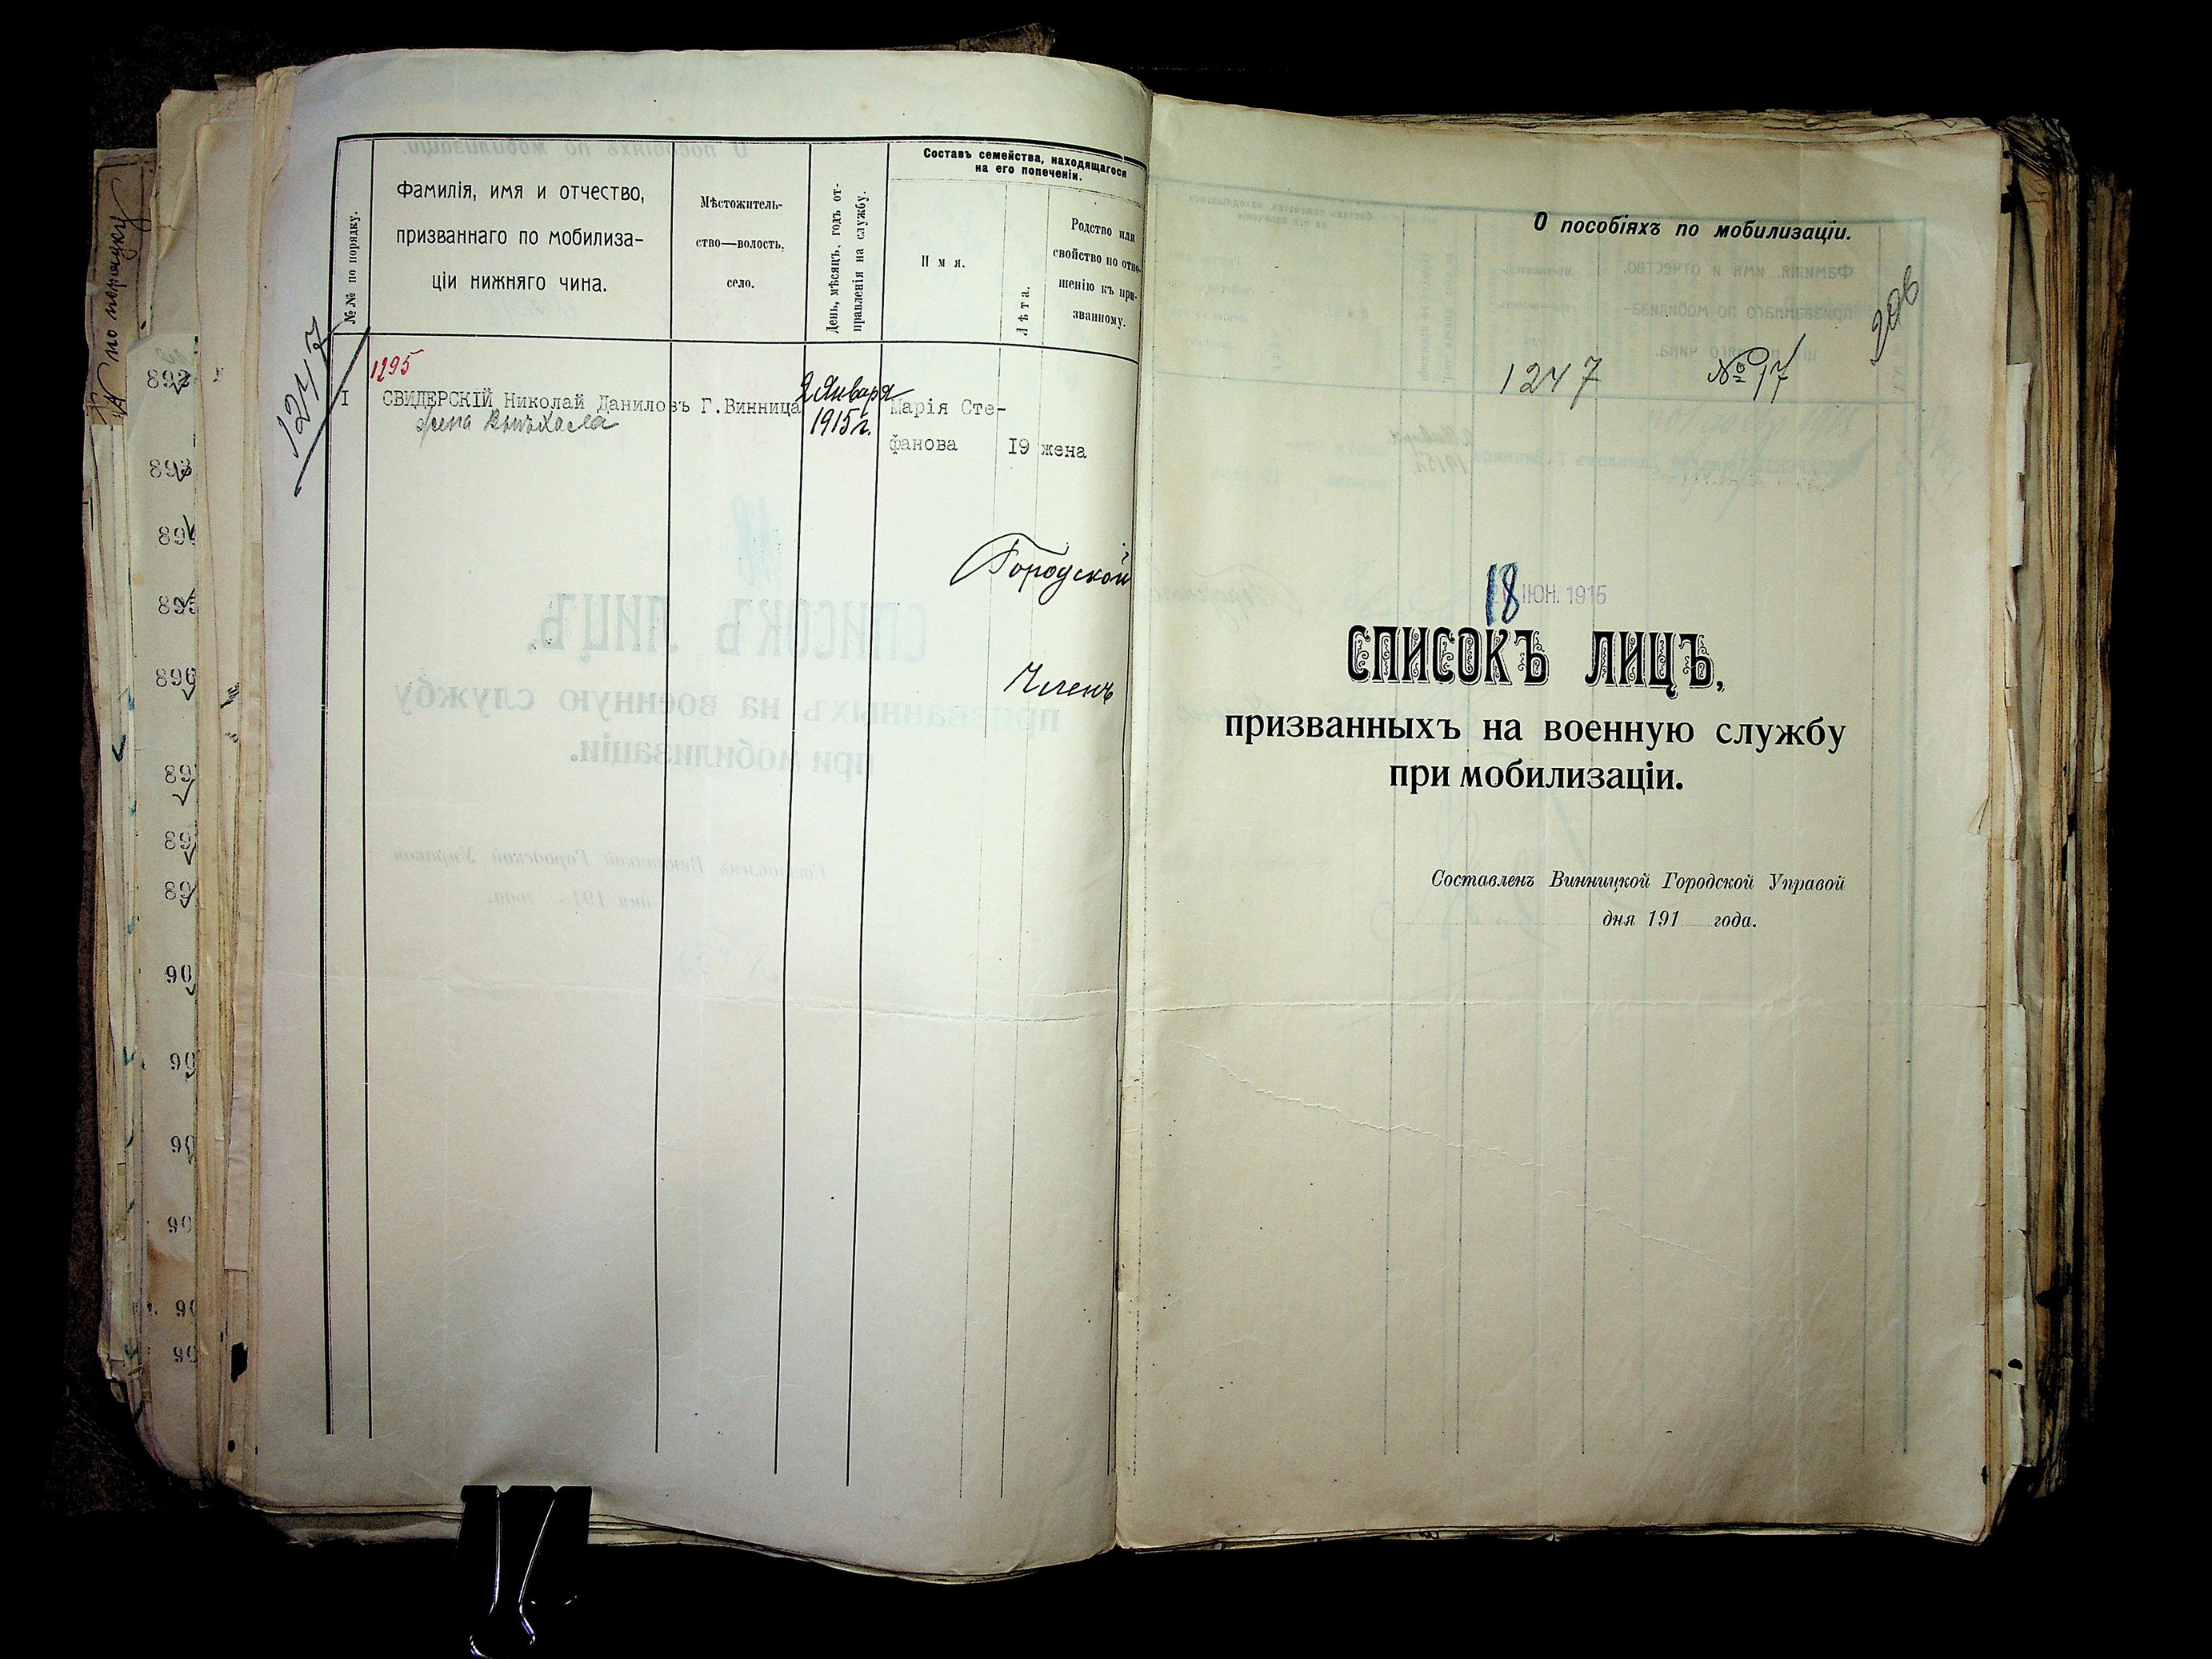 № по порядку
№№ по порядку.
Фамилія, имя и отчество,
призваннаго по мобилиза-
ціи нижняго чина.
Мѣстожитель-
ство—волость,
село.
День, мѣсяцъ, годъ от-
правленія на службу.
Составъ семейства, находящагося
на его попеченіи.
Имя.
Лѣта.
Родство или
свойство по отно-
шенію къ при-
званному.
1247
1295
I СВИДЕРСКІЙ Николай Даниловъ Г.Винница 2 Января Марія Сте-
жена выѣхала 1915 г.
фанова 19 жена
Городской
Членъ
О пособіяхъ по мобилизаціи.
296
1247 № 17
18 ІЮН. 1915
СПИСОКЪ ЛИЦЪ,
призванныхъ на военную службу
при мобилизаціи.
Составленъ Винницкой Городской Управой
дня 191 года.